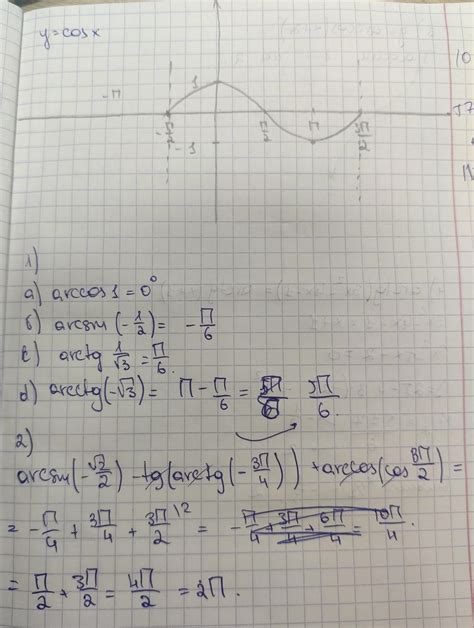 y=cosx
10
1
-π
-π/2
π/2
π
3π/2
-1
1)
a) arccos1=0°
б) arcsin(-1/2)= -π/6
c) arctg 1/√3=π/6.
d) arcctg(-√3)= π-π/6= 5π/6 5π/6.
2)
arcsin(-√2/2)-tg(arctg(-3π/4))+arccos(cos3π/2)=
=-π/4+3π/4+3π/2 = -π/4+3π/4+6π/4=10π/4.
=π/2+3π/2=4π/2=2π.